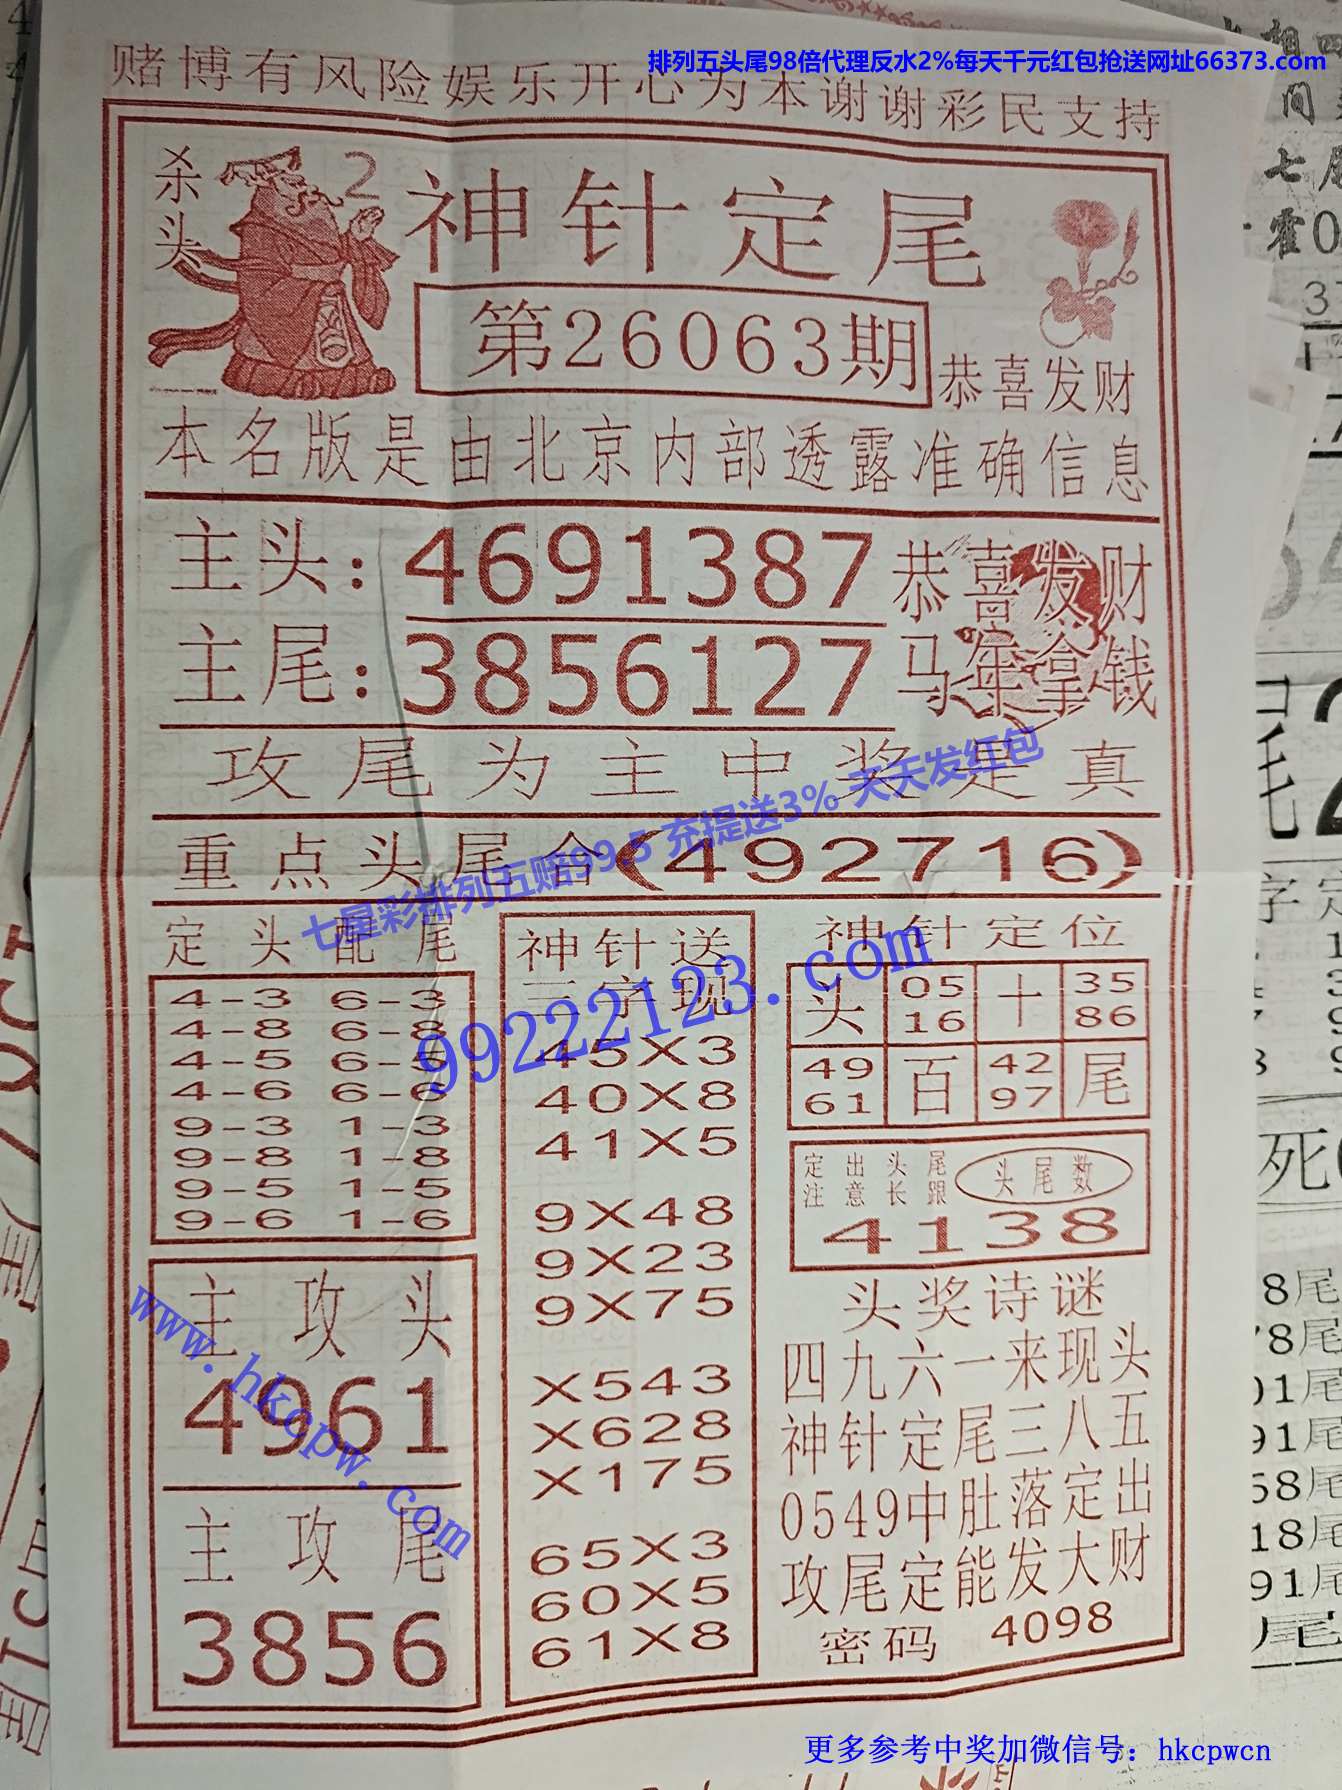 排列五头尾98倍代理反水2%每天千元红包抢送网址66373.com
赌博有风险娱乐开心为本谢谢彩民支持
杀头 2
神针定尾
第26063期
恭喜发财
本名版是由北京内部透露准确信息
主头:4691387
主尾:3856127
恭喜发财
马年拿钱
攻尾为主中奖是真
七星彩排列五赔99.5 充提送3% 天天发红包
重点头尾合(492716)
99222123.com
定头配尾
4-3 6-3
4-8 6-8
4-5 6-5
4-6 6-6
9-3 1-3
9-8 1-8
9-5 1-5
9-6 1-6
主攻头
4961
主攻尾
3856
www.hkcpw.com
神针送
三字现
45X3
40X8
41X5
9X48
9X23
9X75
X543
X628
X175
65X3
60X5
61X8
神针定位
头 05 16 十 35 86
49 61 百 42 97 尾
定出头尾
注意长跟
头尾数
4138
头奖诗谜
四九六一来现头
神针定尾三八五
0549中肚落定出
攻尾定能发大财
密码 4098
更多参考中奖加微信号：hkcpwcn